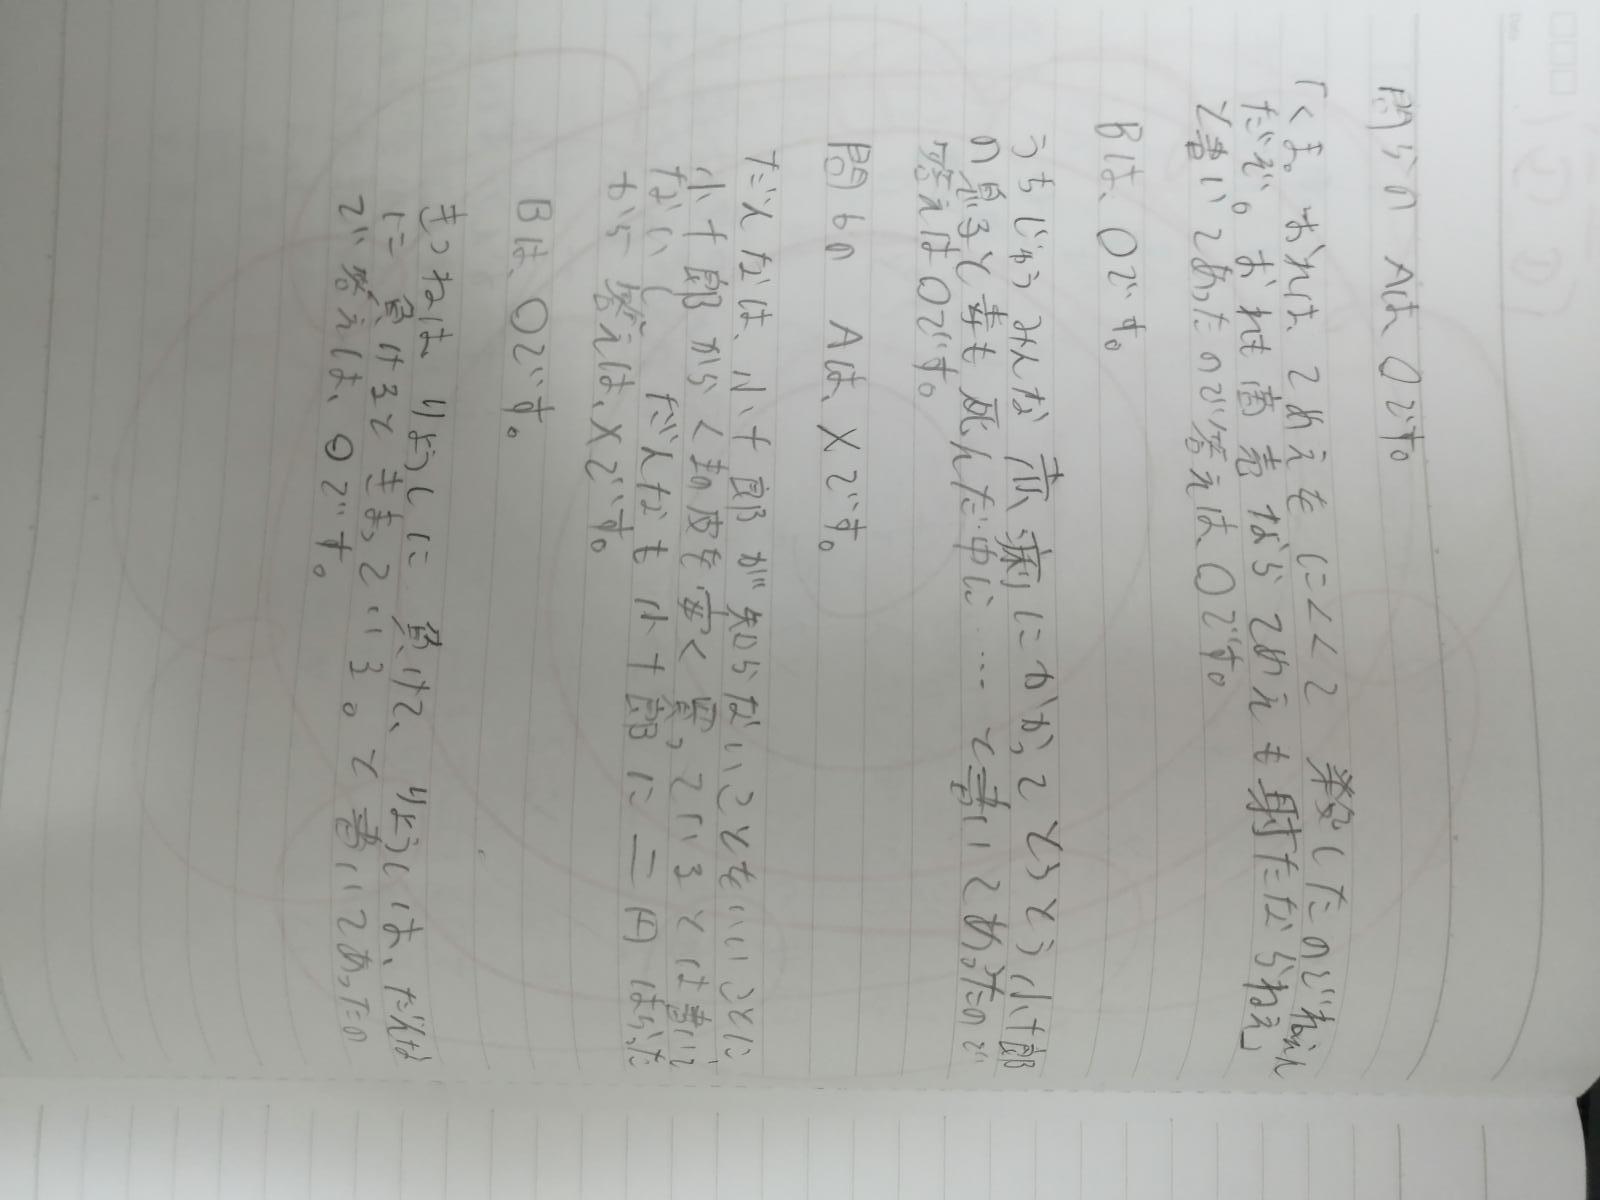 問5の Aは、〇です。
「くま。おれは、てめえをにくくて殺したのでねえん
だぞ。おれも商売ならてめえも射たなならねえ」
と書いてあったので答えは、〇です。
Bは、〇です。
うちじゅうみんな赤痢にかかってとうとう小十郎
の息子と妻も死んだ中に…と書いてあったので
答えは〇です。
問6の Aは、×です。
だんなは、小十郎が知らないことをいいことに
小十郎からくまの皮を安く買っているとは書いて
ない だんなも小十郎に二円はらった
から答えは、×です。
Bは、〇です。
きつねはりょうしに負けて、りょうしは、だんな
に負けるときまっている。と書いてあったの
で答えは、〇です。